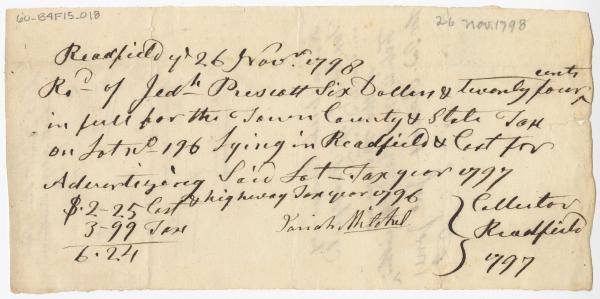 60-B4F15-018
26 Nov. 1798
Readfield ye 26 Novr 1798
Recd of Jedh Prescott Six Dollers & twenty four cents
in full for the Town County & State Tax
on Lot No 196 Lying in Readfield & Cost for
Advertizeing Said Lot - Tax year 1797
& highway Tax year 1796
$. 2-25 Cost
3-99 Tax
6.24
Mitchel
Collector
Readfield
1797